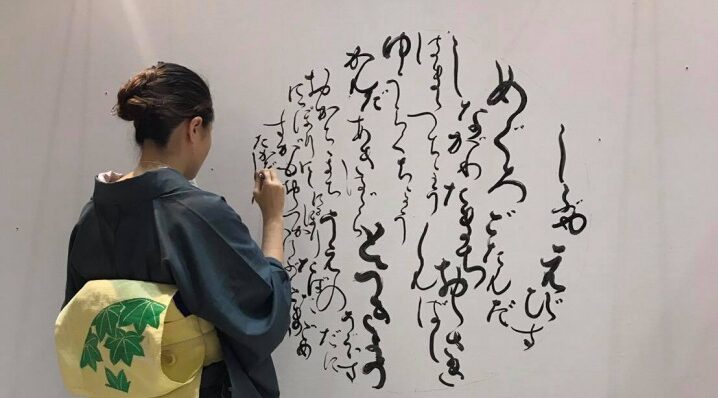 しぶや えびす
めぐろ ごたんだ
しながわ たまち おおさき
はままつちょう しんばし
ゆうらくちょう
かんだ あきはばら とうきょう
おかちまち うえの うぐいす
だに
にっぽり にしにっぽり たばた
たかだ